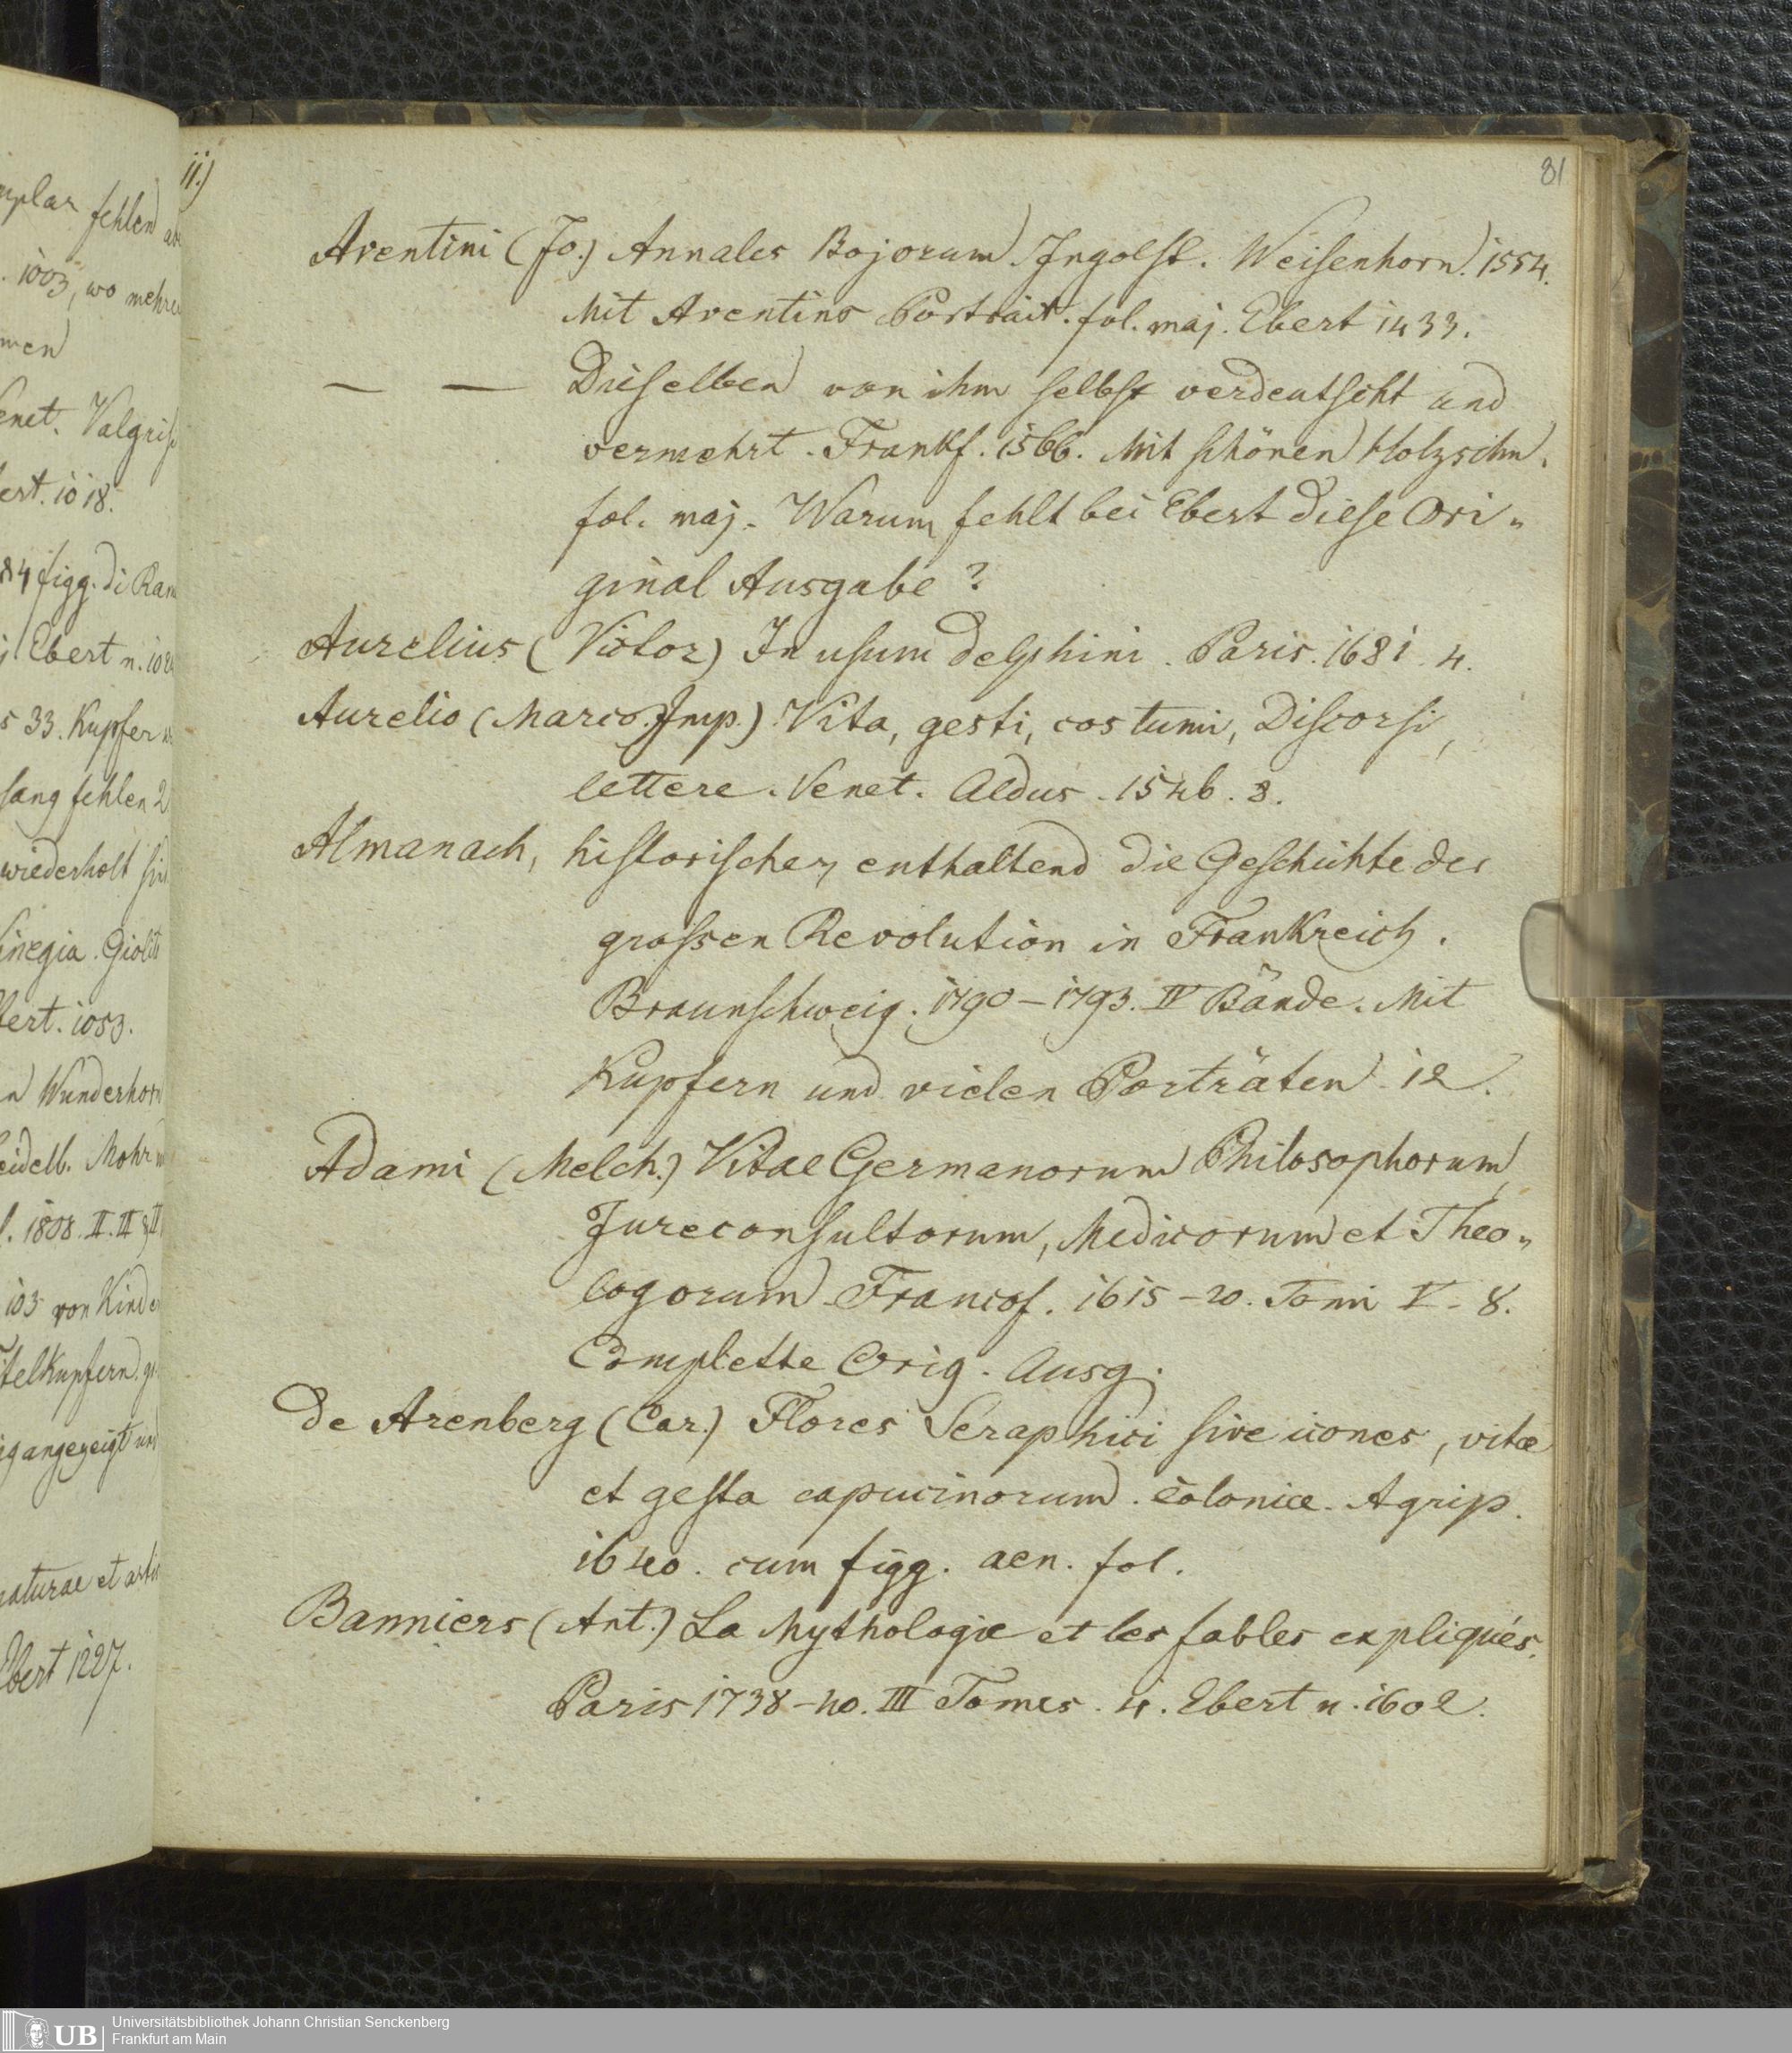 mplar fehlen
1003, wo mehre
men
enet. Valgris
ert. 1018.
84 figg. di Ram
Ebert n. 102
33. Kupfer
sang fehlen 2
wiederholt sin
inegia. Giolit
bert. 1053.
n Wunderhorn
eidelb. Mohr
1808. II. III
103 von Kinde
telkupfern
ig angezeigt und
naturae et artis
Ebert 1227.
11.)
81
Aventini (Jo.) Annales Bojorum. Ingolst. Weisenhorn. 1554.
Mit Aventins Portrait. fol. maj. Ebert 1433.
— — Dieselben von ihm selbst verdeutscht und
vermehrt. Frankf. 1566. Mit schönen Holzschn.
fol. maj. Warum fehlt bei Ebert diese Ori„
ginal Ausgabe?
Aurelius (Victor) In usum delphini. Paris. 1681. 4.
Aurelio (Marco. Imp.) Vita, gesti, costumi, Discorsi,
lettere. Venet. Aldus. 1546. 8.
Almanach, historischer, enthaltend die Geschichte der
grossen Revolution in Frankreich.
Braunschweig. 1790–1793. IV Bände. Mit
Kupfern und vielen Porträten. 12.
Adami (Melch.) Vitae Germanorum Philosophorum,
Jureconsultorum, Medicorum et Theo„
logorum. Francof. 1615–20. Tomi V. 8.
Complette Orig. Ausg.
de Arenberg (Car.) Flores Seraphici sive icones, vitæ
et gesta capucinorum. Coloniæ. Agrip.
1640. cum figg. aen. fol.
Banniers (Ant.) La Mythologie et les fables expliqués.
Paris 1738–40. III Tomes. 4. Ebert n. 1602.
UB
Universitätsbibliothek Johann Christian Senckenberg
Frankfurt am Main